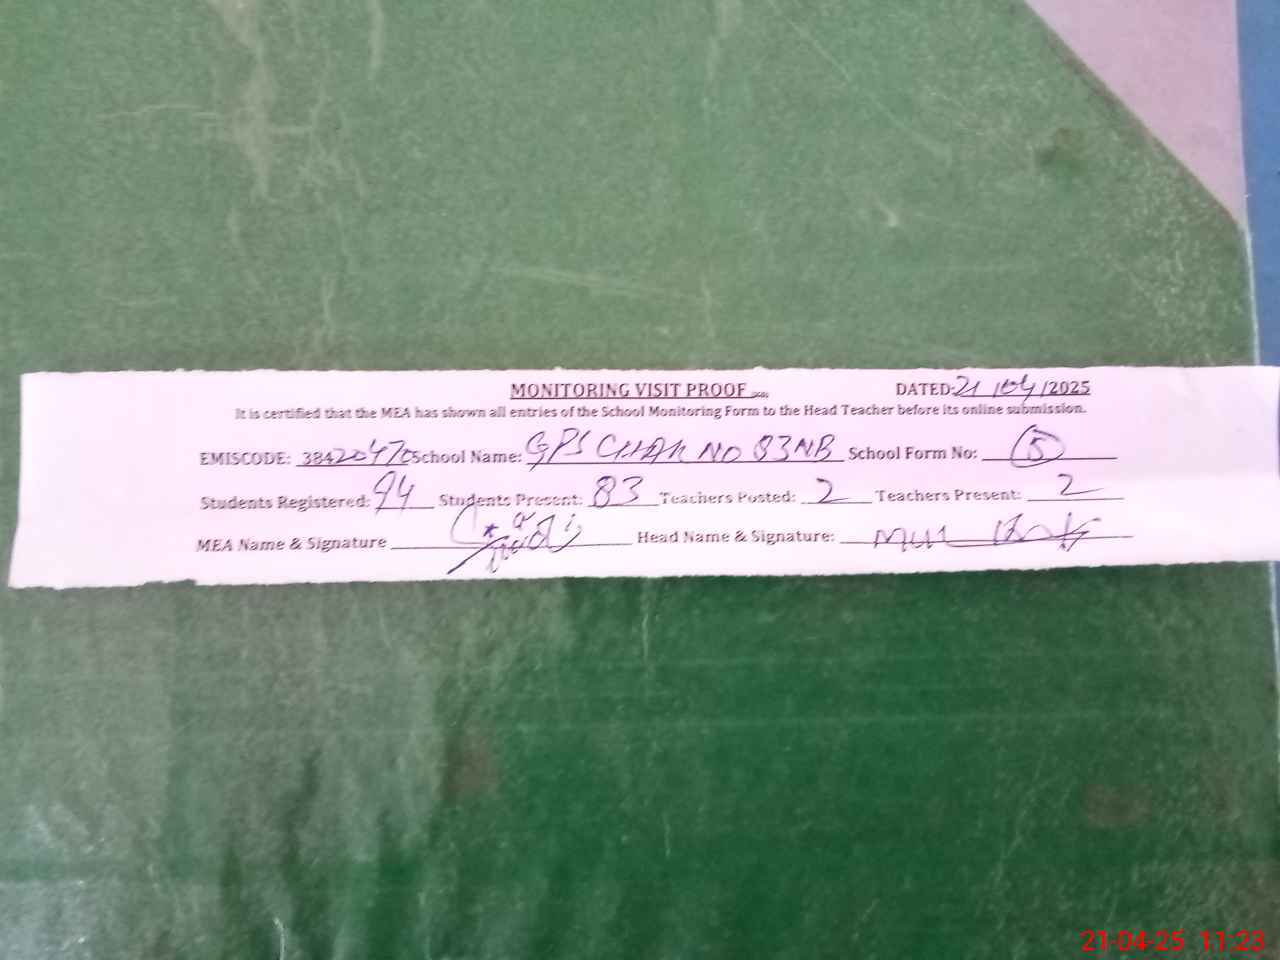 MONITORING VISIT PROOF DATED: 21/04/2025
It is certified that the MEA has shown all entries of the School Monitoring Form to the Head Teacher before its online submission.
EMISCODE: School Name: GPS CHAK NO 83NB School Form No: 5
Students Registered: 94 Students Present: 83 Teachers Posted: 2 Teachers Present: 2
MEA Name & Signature Head Name & Signature:
21-04-25 11:23